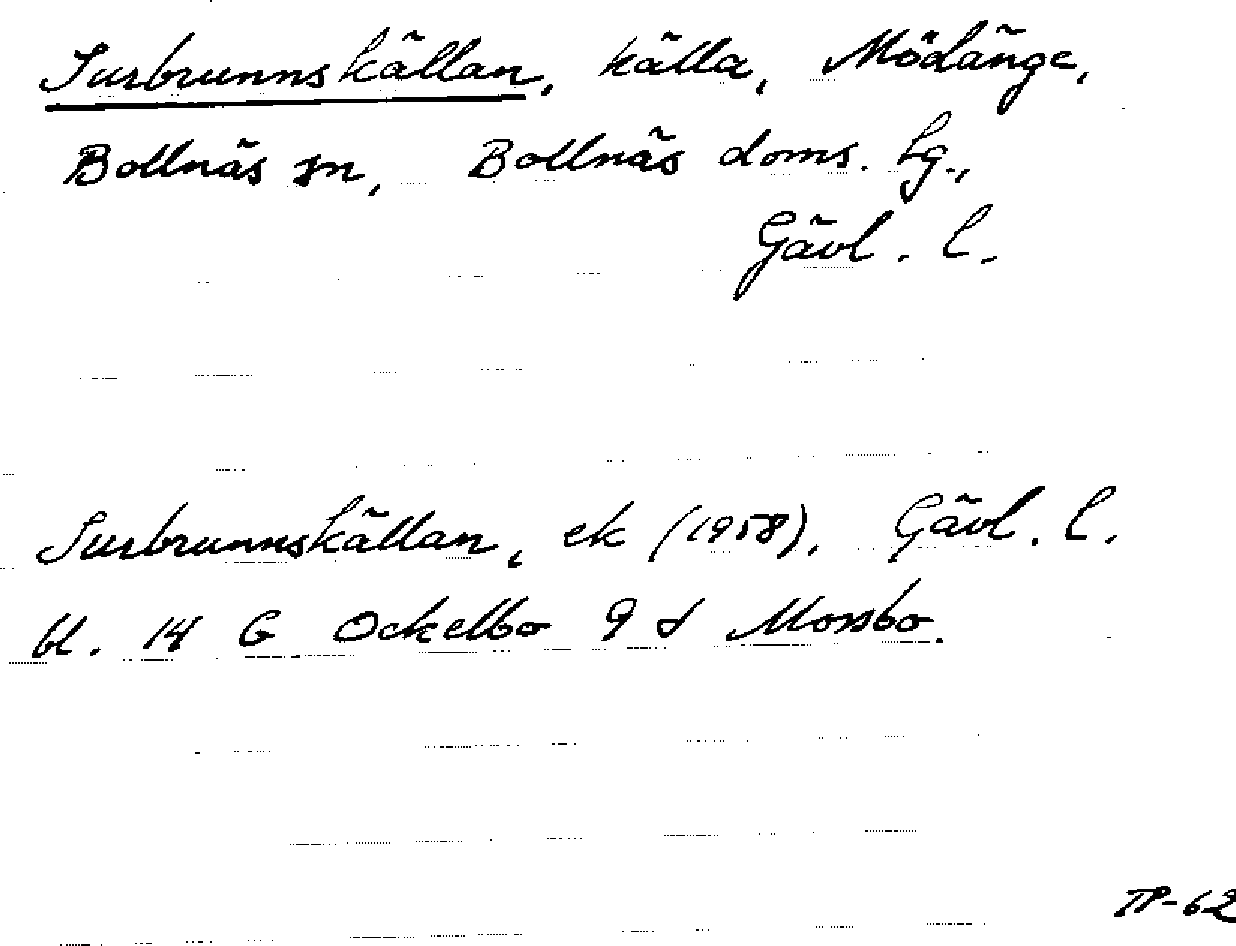 Surbrunnskällan, källa, Mödänge,
Bollnäs sn, Bollnäs doms. hg.,
Gävl. l.
Surbrunnskällan, ek (1958), Gävl. l.
bl. 14 G Ockelbo 9 d Mossbo.
TP-62